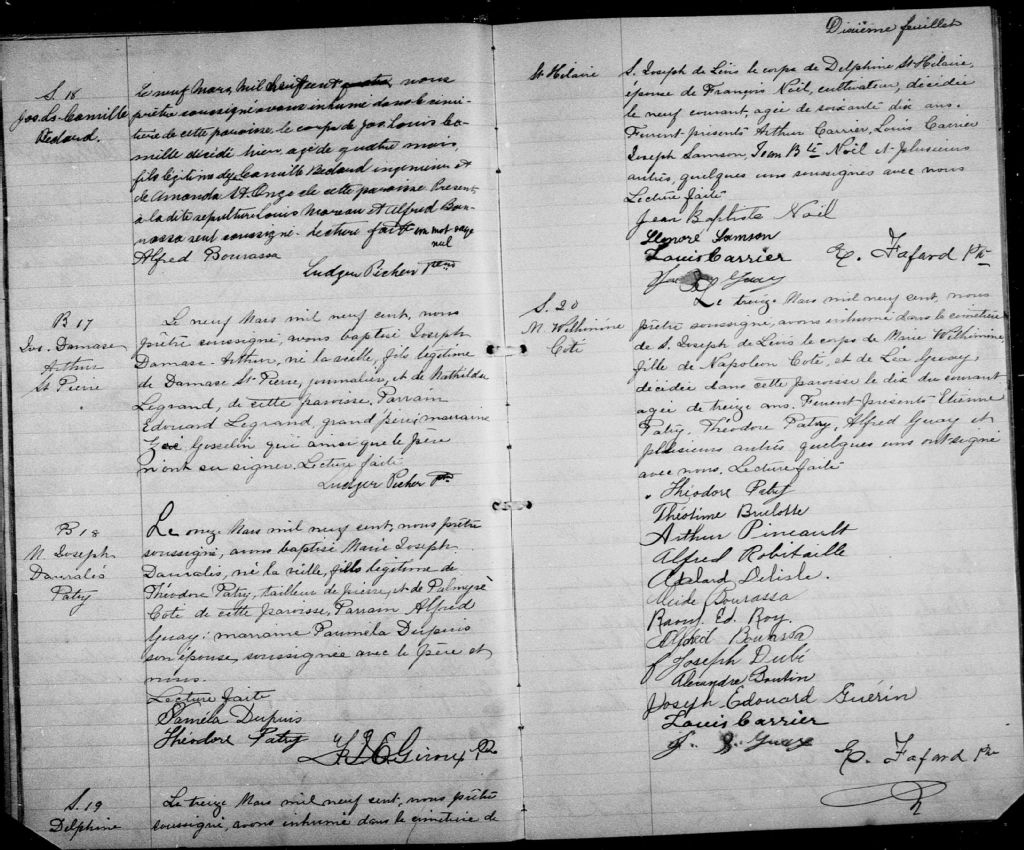 S. 18
Jos. Ls. Camille
Bedard.
Le neuf Mars, mil neuf cent, nous
prêtre soussigné avons inhumé dans le cime-
tière de cette paroisse, le corps de Jos. Louis Ca-
mille décédé hier, agé de quatre mois,
fils légitime de Camille Bedard ingénieur et
de Amanda St. Onge de cette paroisse. Présents
à la dite sépulture Louis Moreau et Alfred Bou-
rassa seul soussigné. Lecture faite un mot rayé
nul
Alfred Bourassa
Ludger Picher Ptre
B 17
Jos. Damase
Arthur
St Pierre
Le neuf Mars mil neuf cent, nous
prêtre soussigné, avons baptisé Joseph
Damase-Arthur, né la veille, fils légitime
de Damase St-Pierre, journalier, et de Mathilde
Legrand, de cette paroisse. Parrain
Edouard Legrand, grand père; marraine
Gosselin qui ainsi que le père
n'ont su signer. Lecture faite
Ludger Picher Ptre
B 18
M. Joseph
Dauralis
Patry
Le onze Mars mil neuf cent, nous prêtre
soussigné, avons baptisé Marie Joseph
Dauralis, né la veille, fils légitime de
Théodore Patry, tailleur de pierre, et de Palmyre
Coté de cette paroisse, Parrain Alfred
Guay; marraine Paméla Dupuis
son épouse, soussignée avec le père et
nous.
Lecture faite
Paméla Dupuis
Théodore Patry
F J E Giroux Ptre
S. 19
Delphine
Le treize Mars mil neuf cent, nous prêtre
soussigné, avons inhumé dans le cimetière de
Dixième feuillet
St Hilaire
S. Joseph de Lévis le corps de Delphine St-Hilaire,
épouse de François Noël, cultivateur, décédée
le neuf courant, agée de soixante dix ans.
Furent présents Arthur Carrier, Louis Carrier
Joseph Samson, Jean Bte Noël et plusieurs
autres, quelques uns soussignés avec nous
Lecture faite
Jean Baptiste Noël
Léonore Samson
Louis Carrier
E. Fafard Ptre
Guay
S. 20
M Wilhimine
Coté
Le treize Mars mil neuf cent, nous
prêtre soussigné, avons inhumé dans le cimetière
de S. Joseph de Lévis le corps de Marie Wilhimine,
fille de Napoléon Coté, et de Léa Guay
décédée dans cette paroisse le dix du courant
agée de treize ans. Furent présents Etienne
Patry, Théodore Patry, Alfred Guay et
plusieurs autres quelques uns ont signé
avec nous. Lecture faite
Théodore Patry
Théotime Brulotte
Arthur Pineault
Alfred Robitaille
Adelard Delisle.
Bourassa
Ed. Roy.
Alfred Bourassa
Joseph Dubé
Alexandre Boutin
Joseph Edouard Guérin
Louis Carrier
Guay
E. Fafard Ptre